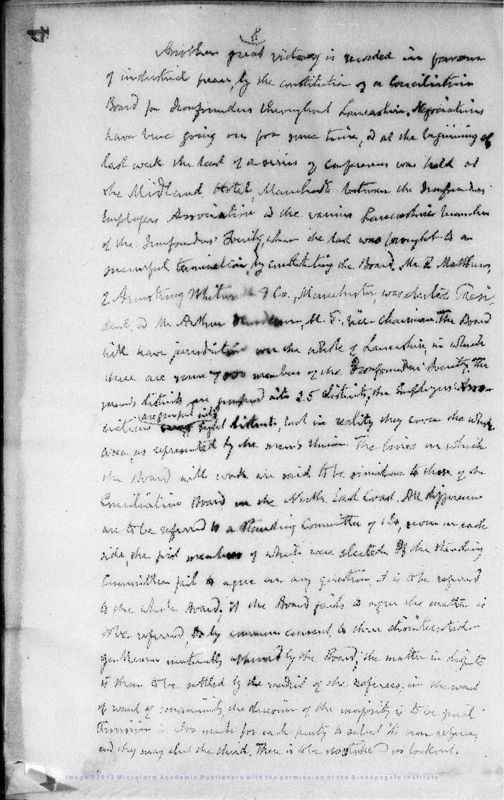 Another great victory is recorded in favour
of industrial peace, by the constitution of a Conciliation
Board for Ironfounders throughout Lancashire. Negociations
have been going on for some time, & at the beginning of
last week the last of a series of conferences was held at
the Midland Hotel, Manchester between the Ironfounders'
Employers Association & the various Lancashire branches
of the Ironfounders' Society, when the task was brought to a
successful termination, by constituting the Board. Mr. R. Matthews
of Armstrong Whitworth & Co. Manchester, was elected Presi-
dent, & Mr. Arthur Henderson, M.P. Vice-Chairman. The Board
will have jurisdiction over the whole of Lancashire, in which
there are some 7000 members of the Ironfounders' Society. The
men's districts are grouped into 25 districts, the Employers' Asso-
ciations are grouped into eight districts, but in reality they cover the whole
area, as represented by the men's Union. The lines on which
the Board will work are said to be similar to those of the
Conciliation Board on the North East Coast. All differences
are to be referred to a Standing Committee of 14, seven on each
side, the first members of which were elected. If the Standing
Committee fail to agree on any question it is to be referred
to the whole Board; if the Board fails to agree the matter is
to be referred by common consent to three disinterested
gentlemen mutually approved by the Board; the matter in dispute
is then to be settled by the verdict of the referees; in the event
of want of unanimity the decision of the majority is to be final
Provision is also made for each party to select its own referee,
and they may elect the third. There is to be no strike & no lockout.
Image ©2013 Microform Academic Publishers with the permission of the Bishopsgate Institute